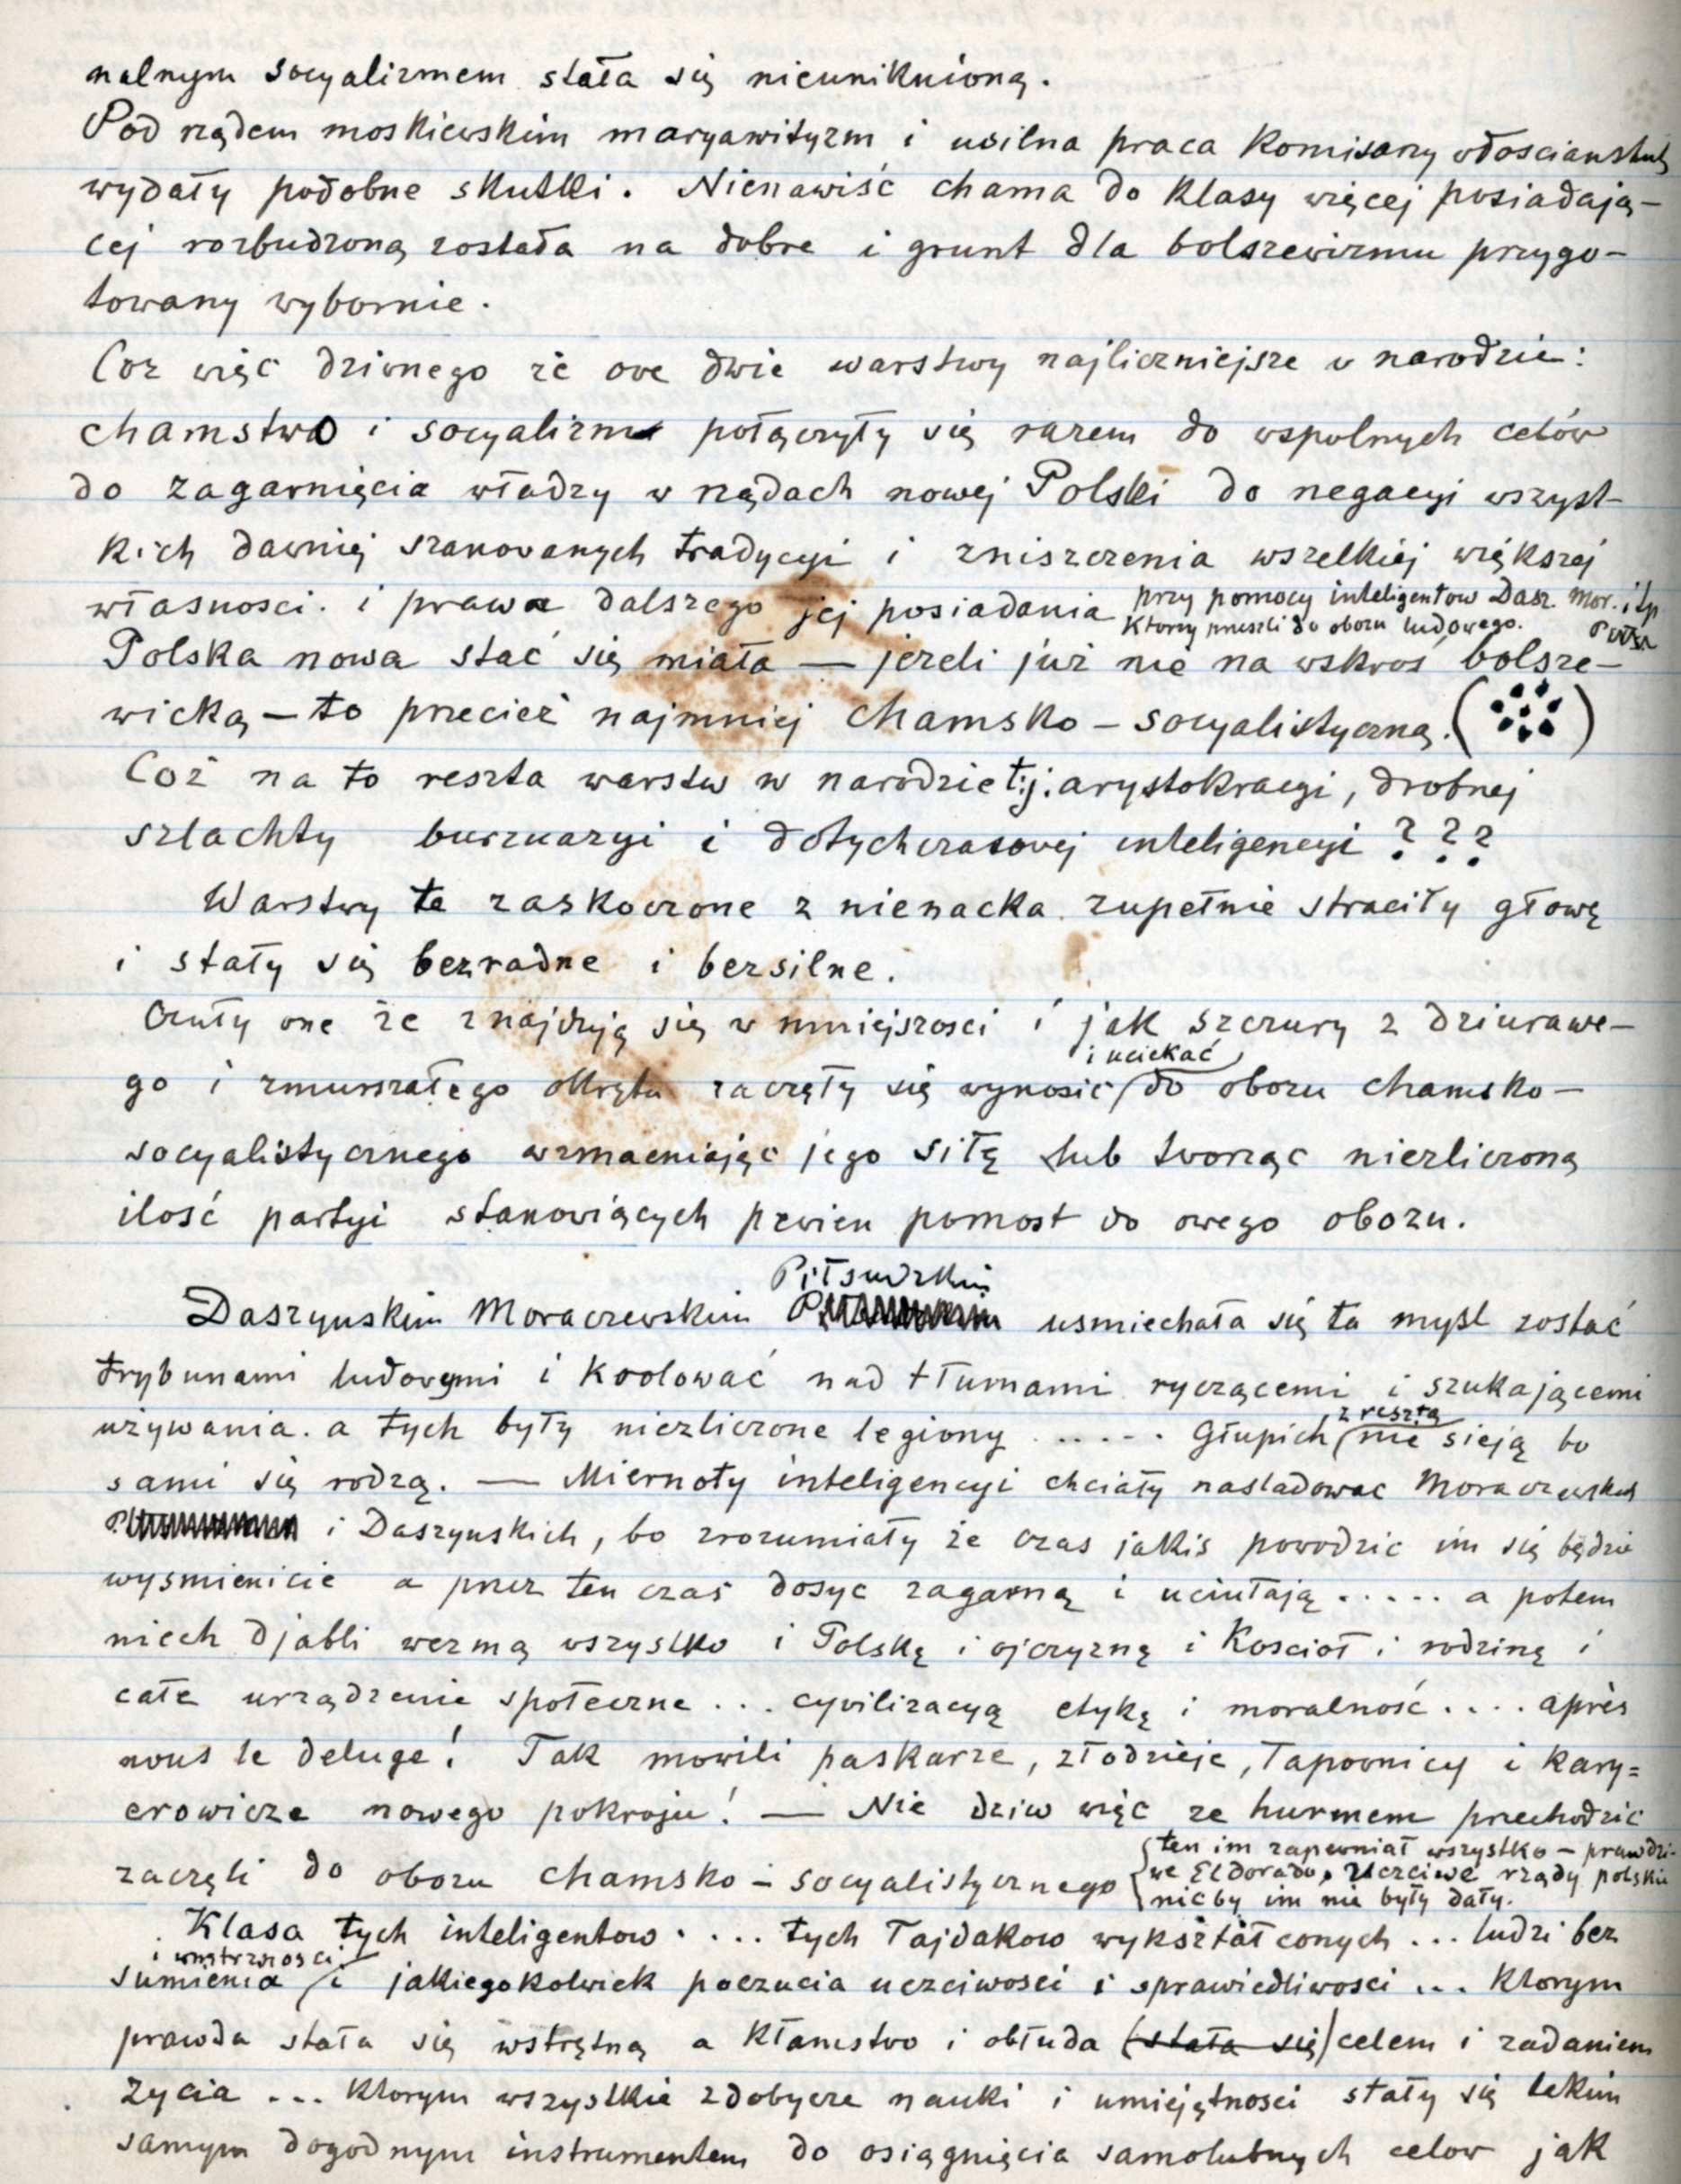 nalnym socyalizmem stała się nieuniknioną.
Pod rządem moskiewskim maryawityzm i usilna praca Komisarzy włościańskich
wydały podobne skutki. Nienawiść chama do klasy więcej posiadają-
cej rozbudzoną została na dobre i grunt dla bolszewizmu przygo-
towany wybornie.
Coz więc dziwnego że owe dwie warstwy najliczniejsze w narodzie:
chamstwo i socyalizm połączyły się razem do wspolnych celów
do zagarnięcia władzy w rządach nowej Polski do negacyi wszyst-
kich dawniej szanowanych tradycyi i zniszczenia wszelkiej większej
własnosci. i prawa dalszego jej posiadania przy pomocy inteligentow Dasz. Mor. i tp
ktorzy przeszli do obozu ludowego.
Polska nowa stać się miała — jeżeli już nie na wskros bolsze-
wicką — to przecież najmniej chamsko-socyalistyczną. ( )
Coż na to reszta warstw w narodzie t.j. arystokracyi, drobnej
szlachty burzuazyi i dotychczasowej inteligencyi ???
Warstwy te zaskoczone z nienacka zupełnie straciły głowę
i stały się bezradne i bezsilne.
Czuły one że znajdują się w mniejszosci i jak szczury z dziurawe-
go i zmurszałego okrętu zaczęły się wynosić i uciekać do obozu chamsko-
socyalistycznego wzmacniając jego siłę lub tworząc niezliczoną
ilość partyi stanowiących pewien pomost do owego obozu.
Piłsudzkim
Daszynskim Moraczewskim usmiechała się ta mysl zostać
trybunami ludowymi i krolować nad tłumami ryczącemi i szukającemi
używania. a tych były niezliczone legiony ..... Głupich z resztą nie sieją bo
sami się rodzą. — Miernoty inteligencyi chciały nasladowac Moraczewskich
i Daszynskich, bo zrozumiały że czas jakis powodzic im się będzie
wysmienicie a przez ten czas dosyc zagarną i uciułają ..... a potem
niech djabli wezmą wszystko i Polskę i ojczyznę i Kosciół i rodzinę i
całe urządzenie społeczne ... cywilizacyą etykę i moralność .... après
nous le deluge! Tak mowili paskarze, złodzieje, łapownicy i kary=
erowicze nowego pokroju! — Nie dziw więc ze hurmem przechodzić
zaczęli do obozu chamsko-socyalistycznego ten im zapewniał wszystko — prawdzi-
we Eldorado. Uczciwe rządy polskie
nicby im nie były dały.
Klasa tych inteligentow .... tych Łajdakow wykształconych ... ludzi bez
sumienia i wnstrznosci i jakiegokolwiek poczucia uczciwosci i sprawiedliwosci ... ktorym
prawda stała się wstrętną a kłamstwo i obłuda (stała się) celem i zadaniem
życia ... ktorym wszystkie zdobycze nauki i umiejętnosci stały się takim
samym dogodnym instrumentem do osiągnięcia samolubnych celow jak